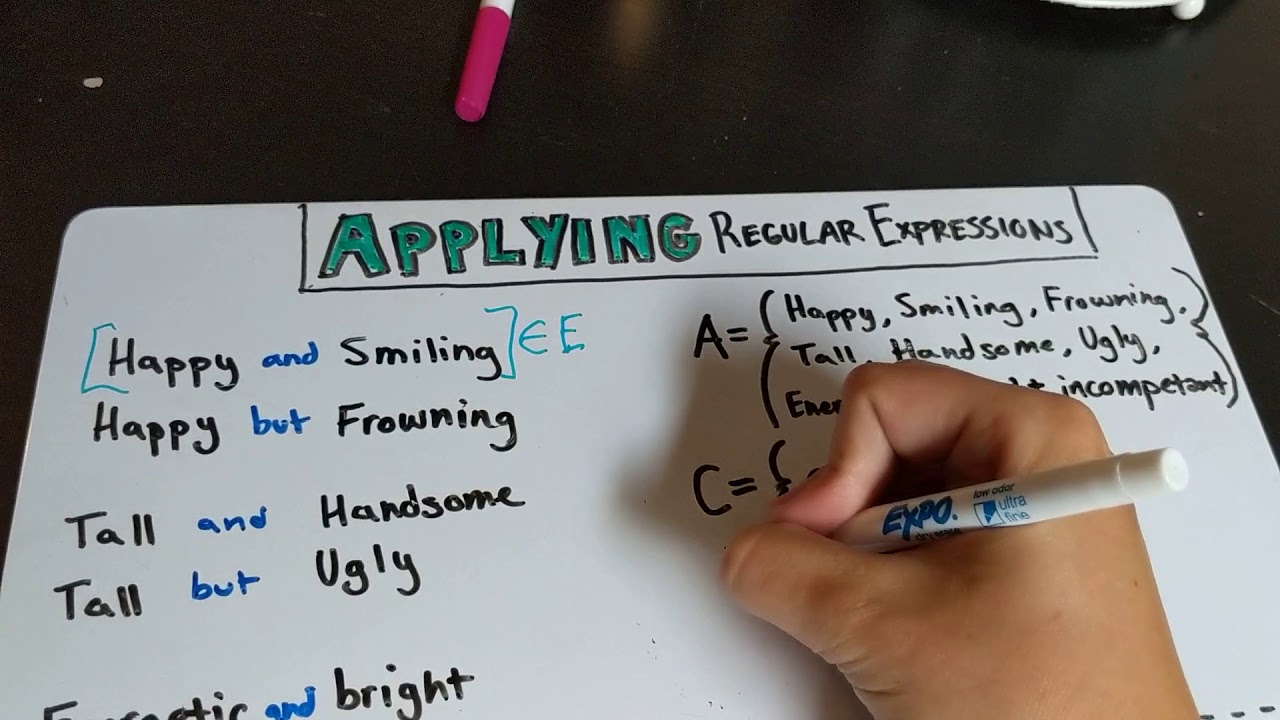 APPLYING REGULAR EXPRESSIONS
[Happy and Smiling] ∈ E
Happy but Frowning
Tall and Handsome
Tall but Ugly
and bright
A = { Happy, Smiling, Frowning,
Tall, Handsome, Ugly,
incompetant }
C = {
EXPO.
low odor
dry erase
ultra
fine